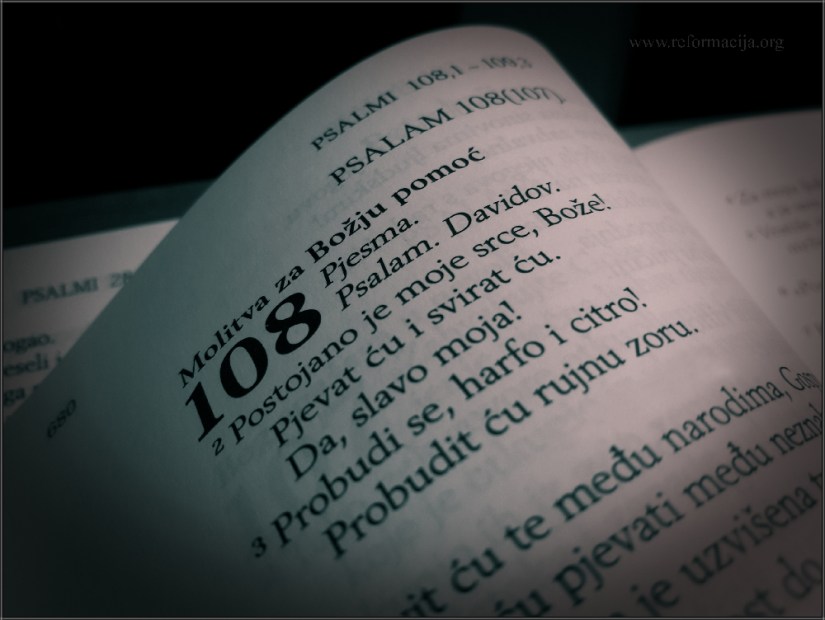 www.reformacija.org
PSALMI 108,1 – 109,3
PSALAM 108(107)
Molitva za Božju pomoć
108 Pjesma.
Psalam. Davidov.
2 Postojano je moje srce, Bože!
Pjevat ću i svirat ću.
Da, slavo moja!
3 Probudi se, harfo i citro!
Probudit ću rujnu zoru.
ću te među narodima,
ću pjevati među
je uzvišena
do
680
PSALMI